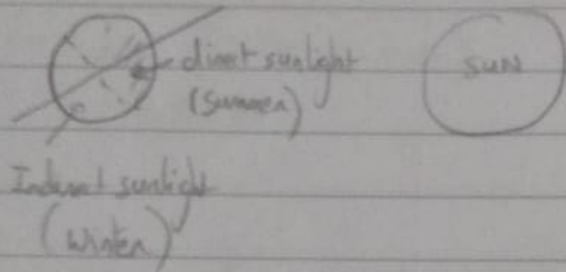 direct sunlight
(Summer)
SUN
Indirect sunlight
(Winter)